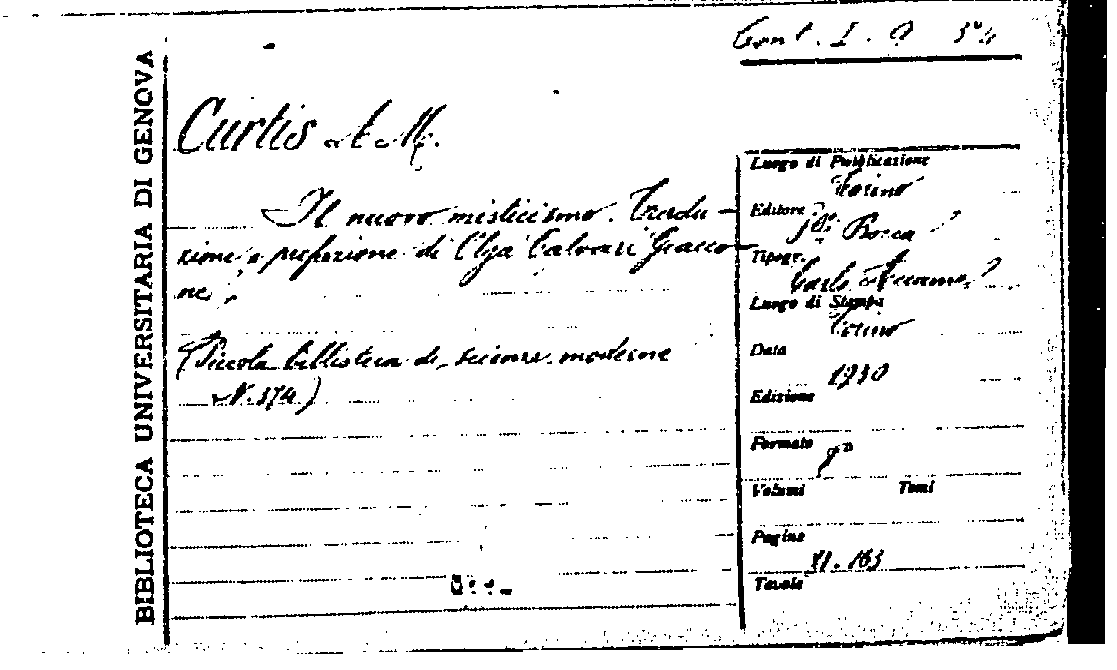 BIBLIOTECA UNIVERSITARIA DI GENOVA
Cont. I. 9 374
Curtis A. M.
Il nuovo misticismo. Tradu-
zione e prefazione di Olga Calvari Giacco-
ne.
(Piccola biblioteca di scienze moderne
N. 374)
Luogo di Pubblicazione
Torino
Editore
F.lli Bocca
Tipogr.
Carlo Accame
Luogo di Stampa
Torino
Data
1930
Edizione
Formato
8°
Volumi Tomi
Pagine
XI. 163
Tavole